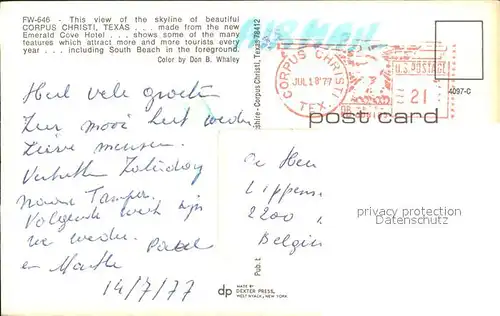 FW-646 - This view of the skyline of beautiful
CORPUS CHRISTI, TEXAS . . . made from the new
Emerald Cove Hotel . . . shows some of the many
features which attract more and more tourists every
year . . . including South Beach in the foreground.
Color by Don B. Whaley
AIR MAIL
CORPUS CHRISTI
JUL 18 '77
TEX.
U.S. POSTAGE
21
4097-C
post card
Corpus Christi, Texas 78412
Pub.
Heel vele groeten
Zeer mooi heel
Lieve mensen.
Vertrekken Zaterdag
naar Tampa.
Volgende week zijn
we weder.
en
14/7/77
De Heer
Lippens
2200
Belgie
privacy protection
Datenschutz
dp
MADE BY
DEXTER PRESS,
WEST NYACK, NEW YORK